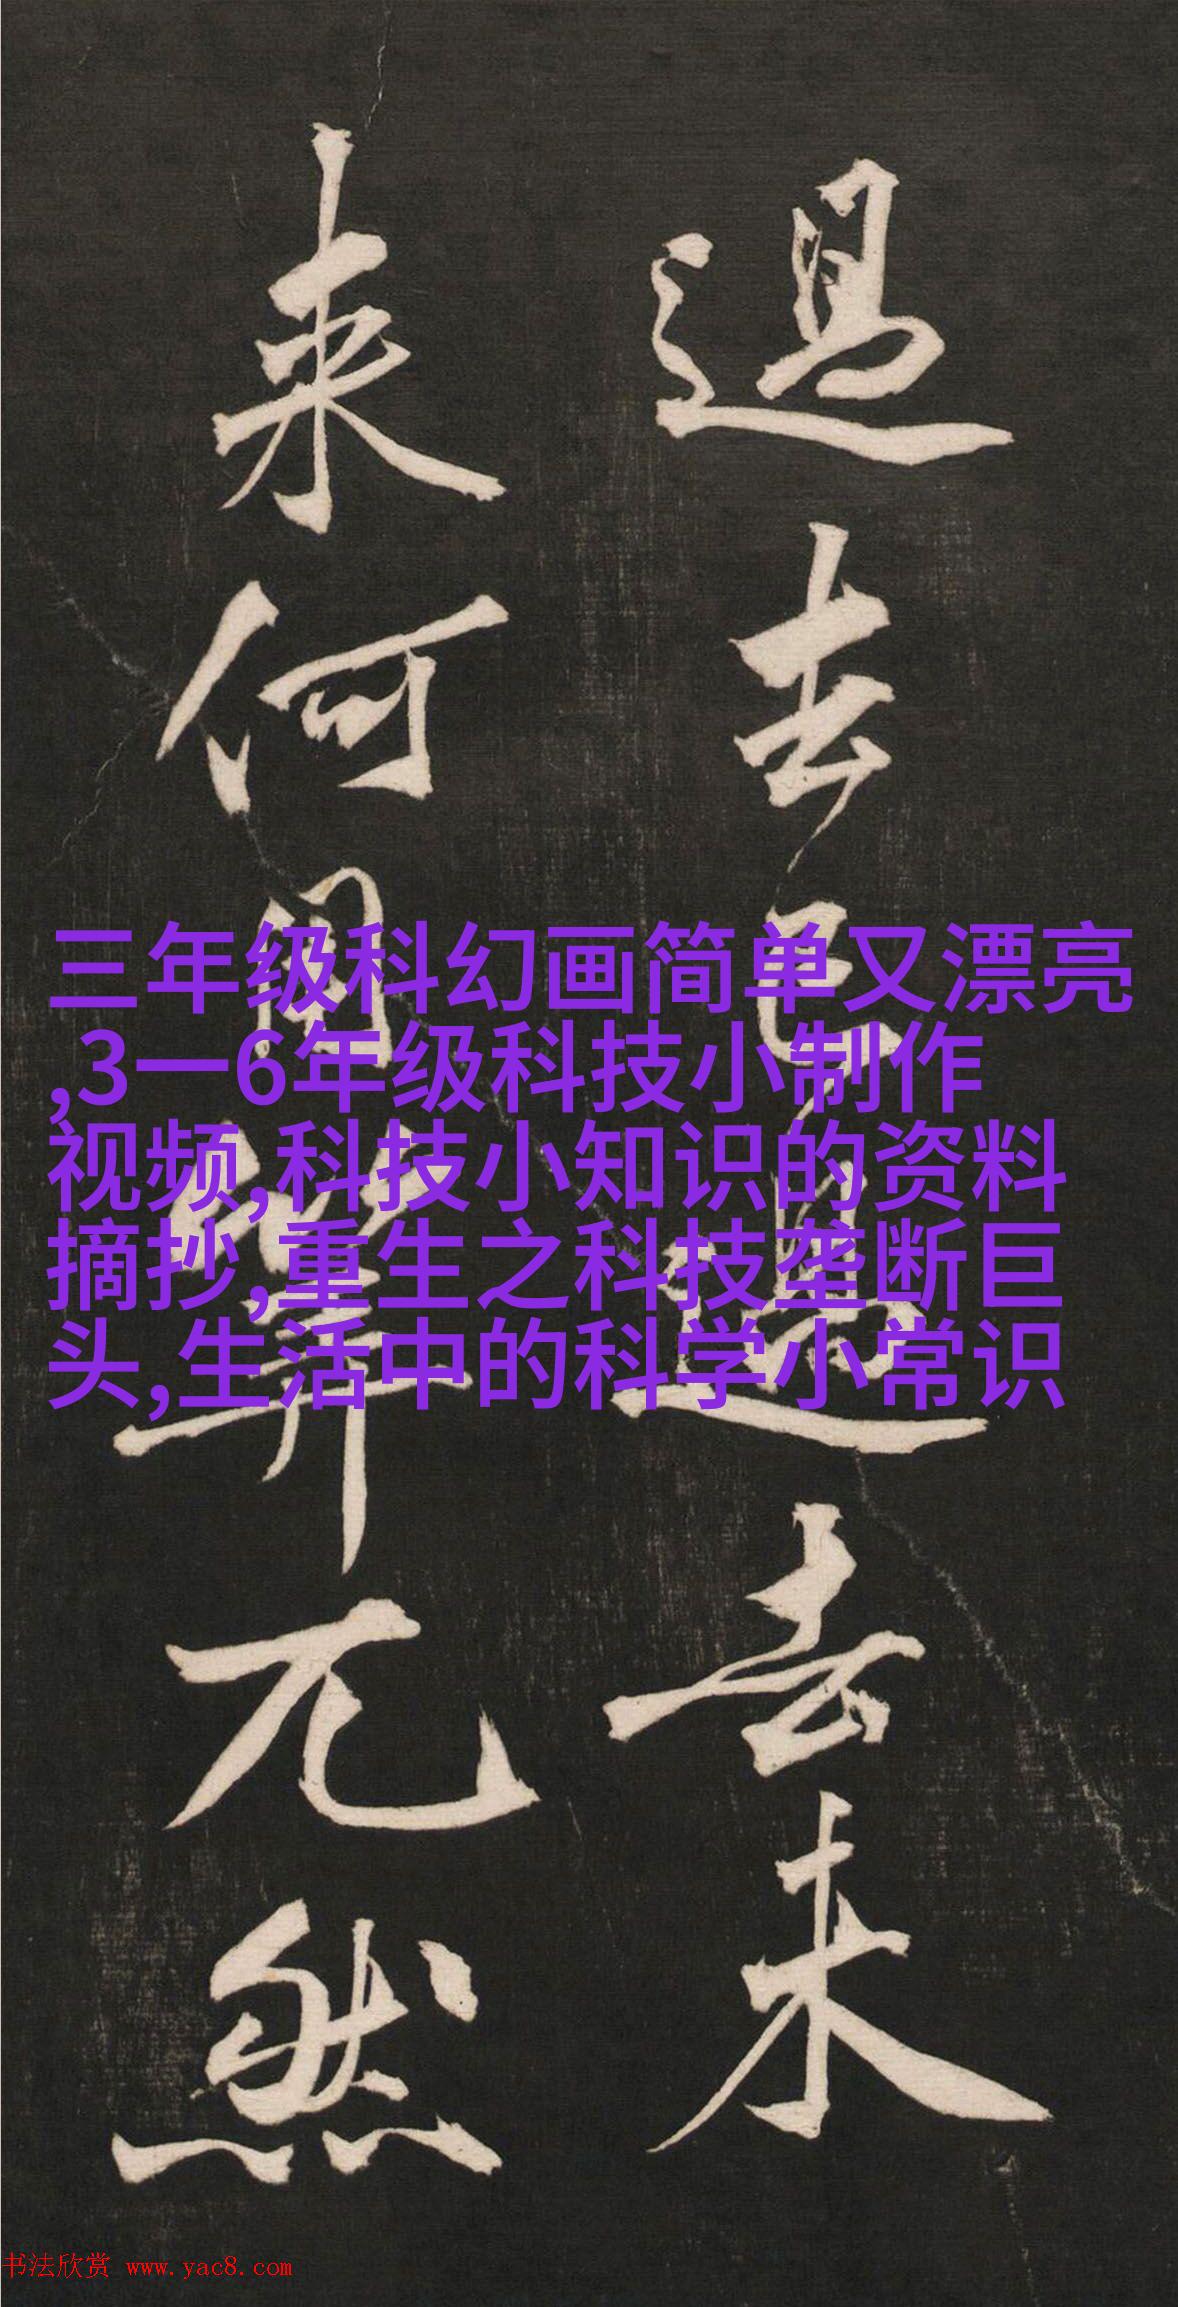 過去已過去未
来何用筭兀然
三年级科幻画简单又漂亮
,3一6年级科技小制作
视频,科技小知识的资料
摘抄,重生之科技垄断巨
头,生活中的科学小常识
书法欣赏 www.yac8.com